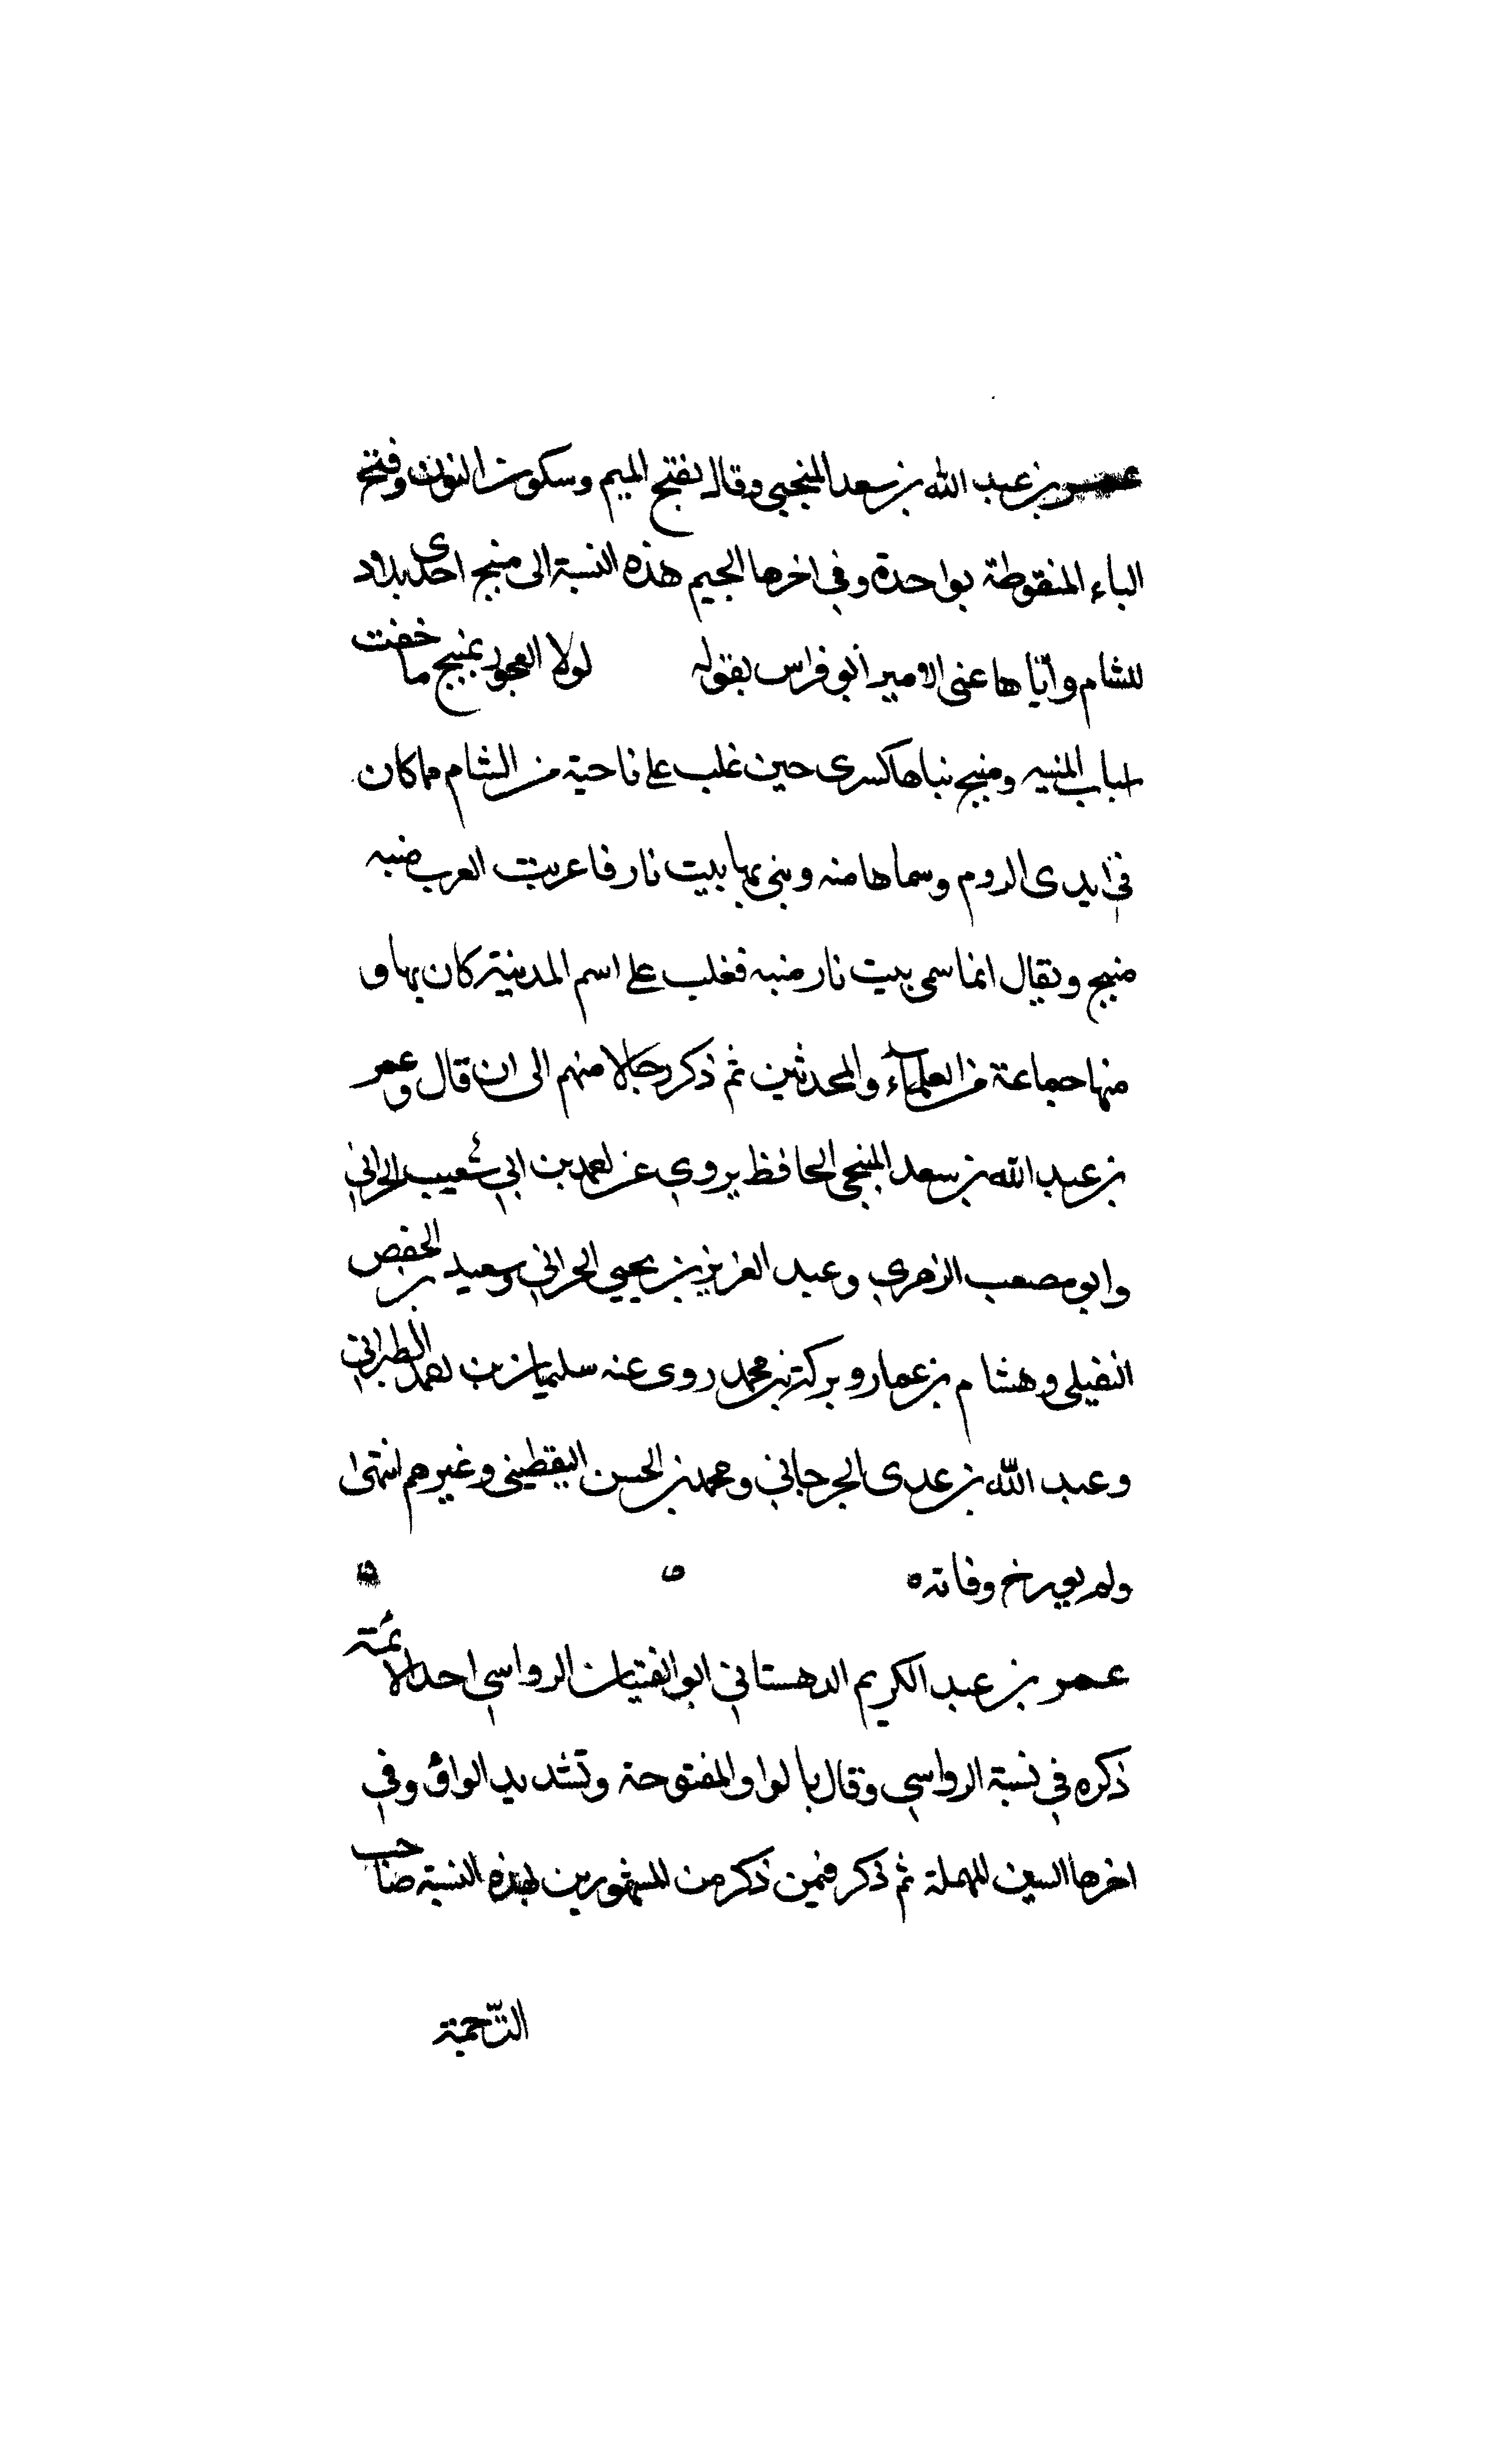 عمر بن عبد الله بن سعد المنبجي وقال بفتح الميم وسكون النون وفتح
الباء المنقوطة بواحدة وفي اخرها الجيم هذه النسبة الى منبج احدى بلاد
للشام وأيّاها عنى الامير ابو فراس بقوله لولا العجوز بمنبج ما خفت
اسباب المنيه ومنبج بناها كسرى حين غلب على ناحية من الشام مما كان
في ايدي الروم وسماها منبه وبنى بها بيت نار فاعربت العرب منبه
منبج ويقال انما سمى بيت نار منبه فغلب على اسم المدينة كان بها و
منها جماعة من العلماء والمحدثين ثم ذكر رجالا منهم الى ان قال وعمر
بن عبد الله بن سعد المنبجي الحافظ يروي عن احمد بن ابي شعيب الحراني
وابو مصعب الزهري وعبد العزيز بن يحيى الحراني وسعيد بن الحفص
النفيلي وهشام بن عمار وبركة بن محمد روى عنه سليمان بن احمد الطبراني
وعبد الله بن عدى الجرجاني ومحمد بن الحسن اليقطيني وغيرهم انتهى
ولم يورخ وفاته ه ه ه
عمر بن عبد الكريم الدهستاني ابو الفتيان الرواسي احد الائمة
ذكره في نسبة الرواسي وقال بالواو المفتوحة وتشديد الواو وفي
اخرها السين المهملة ثم ذكر فيمن ذكر من المشهورين بهذه النسبة صاحب
الترجمة